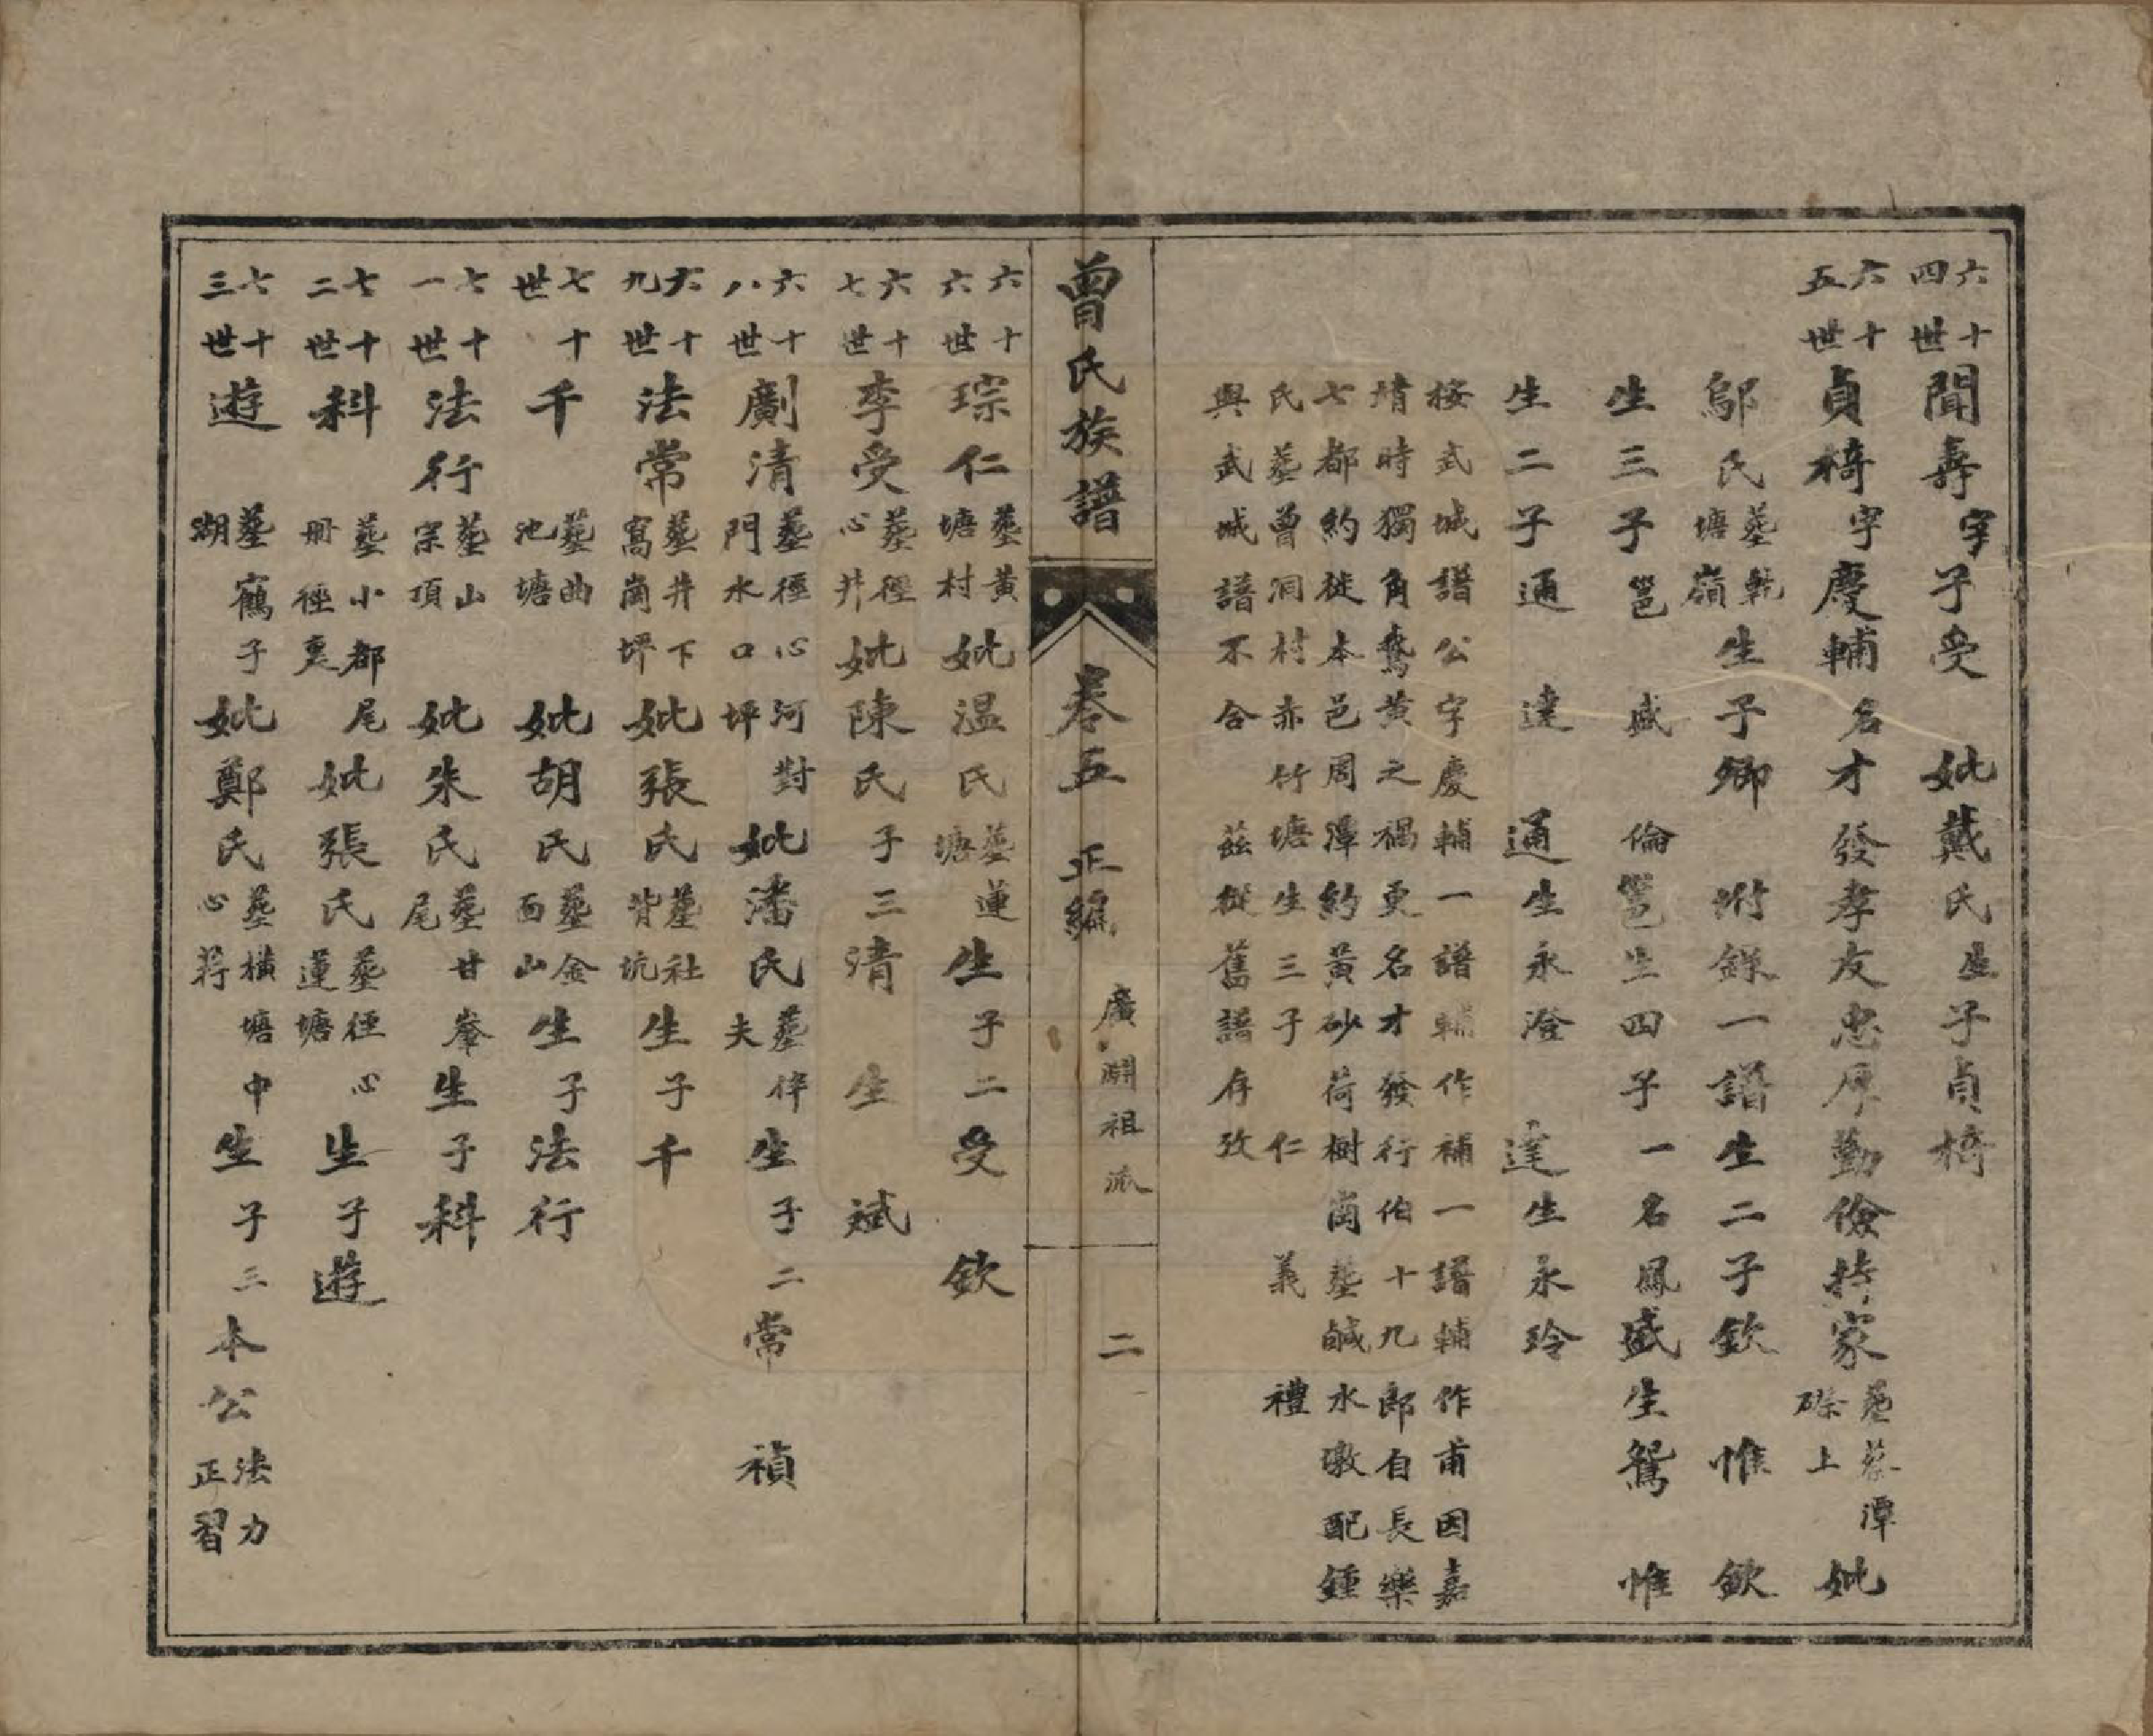 六十四世聞壽字子受　妣戴氏生子貞椅
六十五世貞椅字慶輔名才發孝友忠厚勤儉持家墓蔡潭磜上妣
鄔氏墓乾塘嶺生子鄉　附錄一譜生二子欽　惟　欽
生三子邕　盛　倫邕生四子一名鳳盛生鴛　惟
生二子通　達　通生永澄　達生永玲
按武城譜公字慶輔一譜輔作補一譜輔作甫因嘉
靖時獨角鰲黃之禍更名才發行伯十九郎自長樂
七都約徙本邑周潭約黃砂荷樹崗墓鹹水墩配鍾
氏墓曾洞村赤竹塘生三子　仁　義　禮
與武城譜不合　茲從舊譜存攷
曾氏族譜　卷五　正編　廣開祖派　二
六十六世琮仁墓黃塘村妣温氏墓蓮塘生子二受　欽
六十七世李受墓徑心井妣陳氏子三清　生　斌
六十八世劇清墓徑心河對門水口坪妣潘氏墓伴夫生子二常　禎
六十九世法常墓井下窩崗坪妣張氏墓社背坑生子千
七十世千　墓曲池塘　妣胡氏墓金面山生子法行
七十一世法行墓山宗頂　妣朱氏墓甘峯尾生子科
七十二世科　墓小都尾毌徑裏妣張氏墓徑心蓮塘生子遊
七十三世遊　墓鶴子湖妣鄭氏墓橫塘中心莳生子三本公法力正習